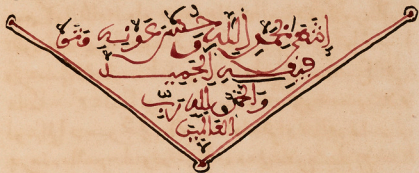 انتهى بحمد الله وحسن عونه
الجميل
والحمد لله رب
العالمين